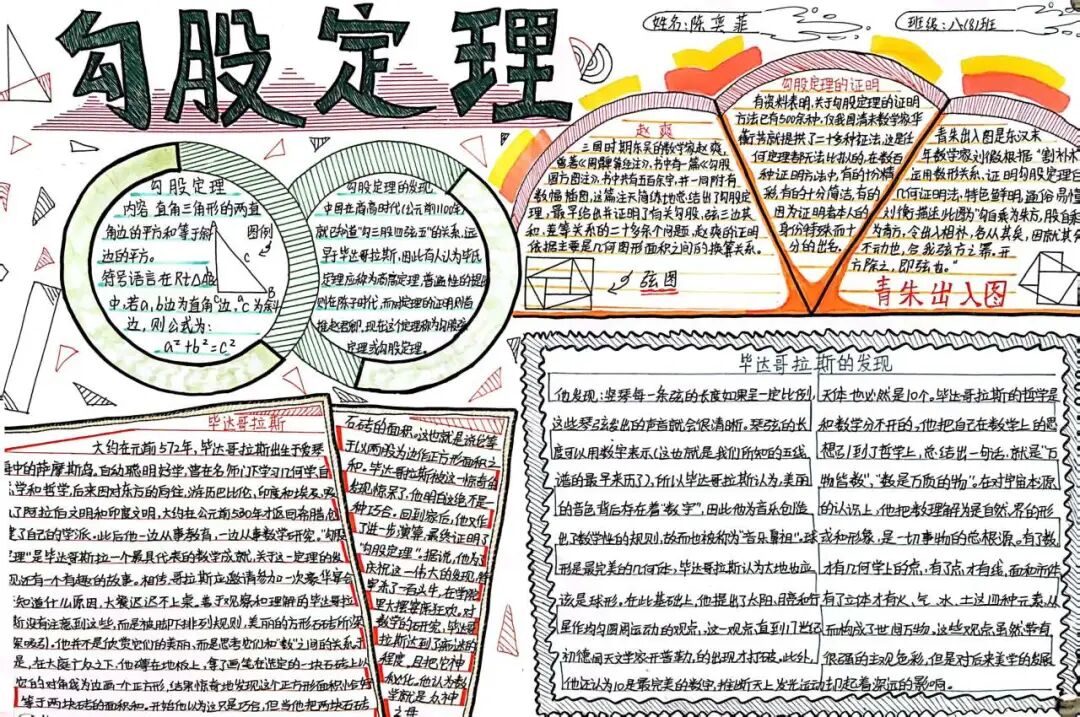 勾股定理
姓名:陈奕菲
班级:八(8)班
勾股定理
内容 直角三角形的两直
角边的平方和等于斜
边的平方。
图例
符号语言 在Rt△ABC
中,若a,b边为直角边,c为斜
边,则公式为:
a²+b²=c²
C
C
B
勾股定理的发现
中国在商高时代(公元前1100年)
就已知道"勾三股四弦五"的关系,远
早于毕达哥拉斯,因此有人认为毕氏
定理应称为商高定理,普遍性的
则在陈子时代,而
现在这个定理称为勾股弦
定理或勾股定理。
赵爽
三国时期东吴的数学家赵爽,
著《周髀算经注》,书中有一篇《勾股
圆方图注》,书中共有五百余字,并一同附有
数幅插图,这篇注文简练地总结出了勾股定
理,最早给出并证明了有关勾股,弦三边其
和,差等关系的二十多个问题,赵爽的证明
依据主要是几何图形面积之间的换算关系。
弦图
勾股定理的证明
有资料表明,关于勾股定理的证明
方法已有500余种,仅我国清末数学家华
衡芳就提供了二十多种证法,这是任
何定理都无法比拟的,在数百
种证明方法中,有的十分精
彩,有的十分简洁,有的
因为证明者本人的
身份特殊而十
分的出名。
青朱出入图是东汉末
年数学家刘徽根据"割补术"
运用数形关系,证明勾股定理的
几何证明法,特色鲜明,通俗易懂
刘徽描述此图为"勾自乘为朱方,股自乘
为青方,令出入相补,各从其类,因就其余
不动也,合成弦方之幂,开
方除之,即弦也。"
青朱出入图
毕达哥拉斯
大约在元前572年,毕达哥拉斯出生于爱琴
海中的萨摩斯岛,自动聪明好学,曾在名师门下学习几何学,自
然学和哲学,后来因对东方的向往,游历巴比伦,印度和埃及,
了阿拉伯文明和印度文明,大约在公元前530年才返回希腊创
建了自己的学派。此后他一边从事教育,一边从事数学研究。"勾股
定理"是毕达哥斯拉一个最具代表的数学成就,关于这一定理的发
现还有一个有趣的故事。相传,哥拉斯应邀请参加一次豪华宴会
知道什么原因,大餐迟迟不上桌。善于观察和理解的毕达哥拉
斯没有注意到这些,而是被脚下排列规则,美丽的方形石砖所深
深吸引。他并不是欣赏它们的美丽,而是思考它们和"数"之间的关系,于
是,在大庭广众之下,他蹲在地板上,拿了画笔在选定的一块石砖上以
它的对角线为边画一个正方形,结果惊奇地发现这个正方形面积恰好
等于两块砖的面积和。开始他以为这只是巧合,但当他把两块石砖
石砖的面积。这也就是说它等
于以两股为边作正方形面积之
和。毕达哥拉斯被这一惊奇的
发现惊呆了,他明白这绝不是
一种巧合。回到家后,他又作
了进一步演算,最终证明了
"勾股定理"。据说,他为了
庆祝这一伟大的发现,特
宰杀了一百头牛,在学院
里大摆宴席狂欢,对
数学的研究,毕达哥
拉斯达到了痴迷的
程度,且把它神
秘化。他认为数
学就是众神
之母
毕达哥拉斯的发现
他发现:竖琴每一条弦的长度如果呈一定比例
这些琴弦发出的声音就会很清晰。琴弦的长
度可以用数字表示(这也就是我们所知的五线
谱的最早来历了),所以毕达哥拉斯认为,美丽
的音色背后存在着"数字",因此他为音乐创造
出了数学性的规则,故而也被称为"音乐鼻祖"。球
形是最完美的几何体,毕达哥拉斯认为大地也应
该是球形,在此基础上,他提出了太阳、月亮和行
星作均匀圆周运动的观点,这一观点,直到17世纪
初德国天文学家开普勒,的出现才打破。此外,
他还认为10是最完美的数字,推断天上发光运动
天体也必然是10个。毕达哥拉斯的哲学是
和数学分不开的,他把自己在数学上的思
想引到了哲学上,总结出一句话,就是"万
物皆数","数是万质的物"。在对宇宙本源
的认识上,他把数理解为是自然界的形
式和形象,是一切事物的总根源。有了数
才有几何学上的点,有了点,才有线,面和
有了立体才有火、气、水、土这四种元素,从
而构成了世间万物。这些观点虽然带有
很强的主观色彩,但是对后来美学的发展
却起着深远的影响。